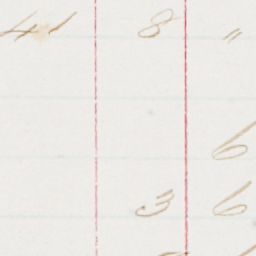 41 8 "
6
3 6